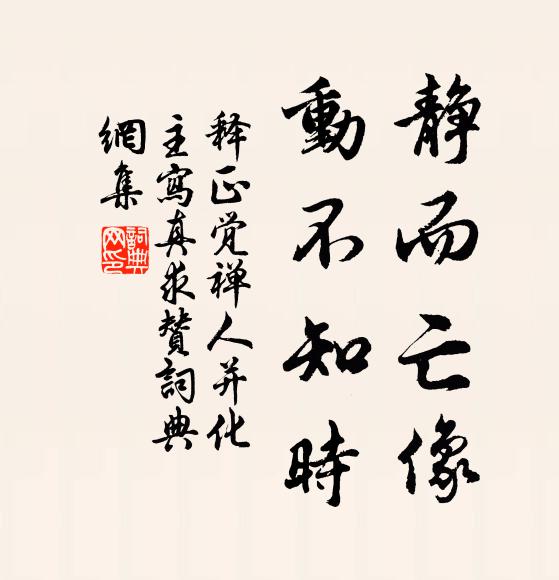 静而亡像
動不知時
释正觉禅人并化
主寫真求赞詞典
網集
詞典
网印